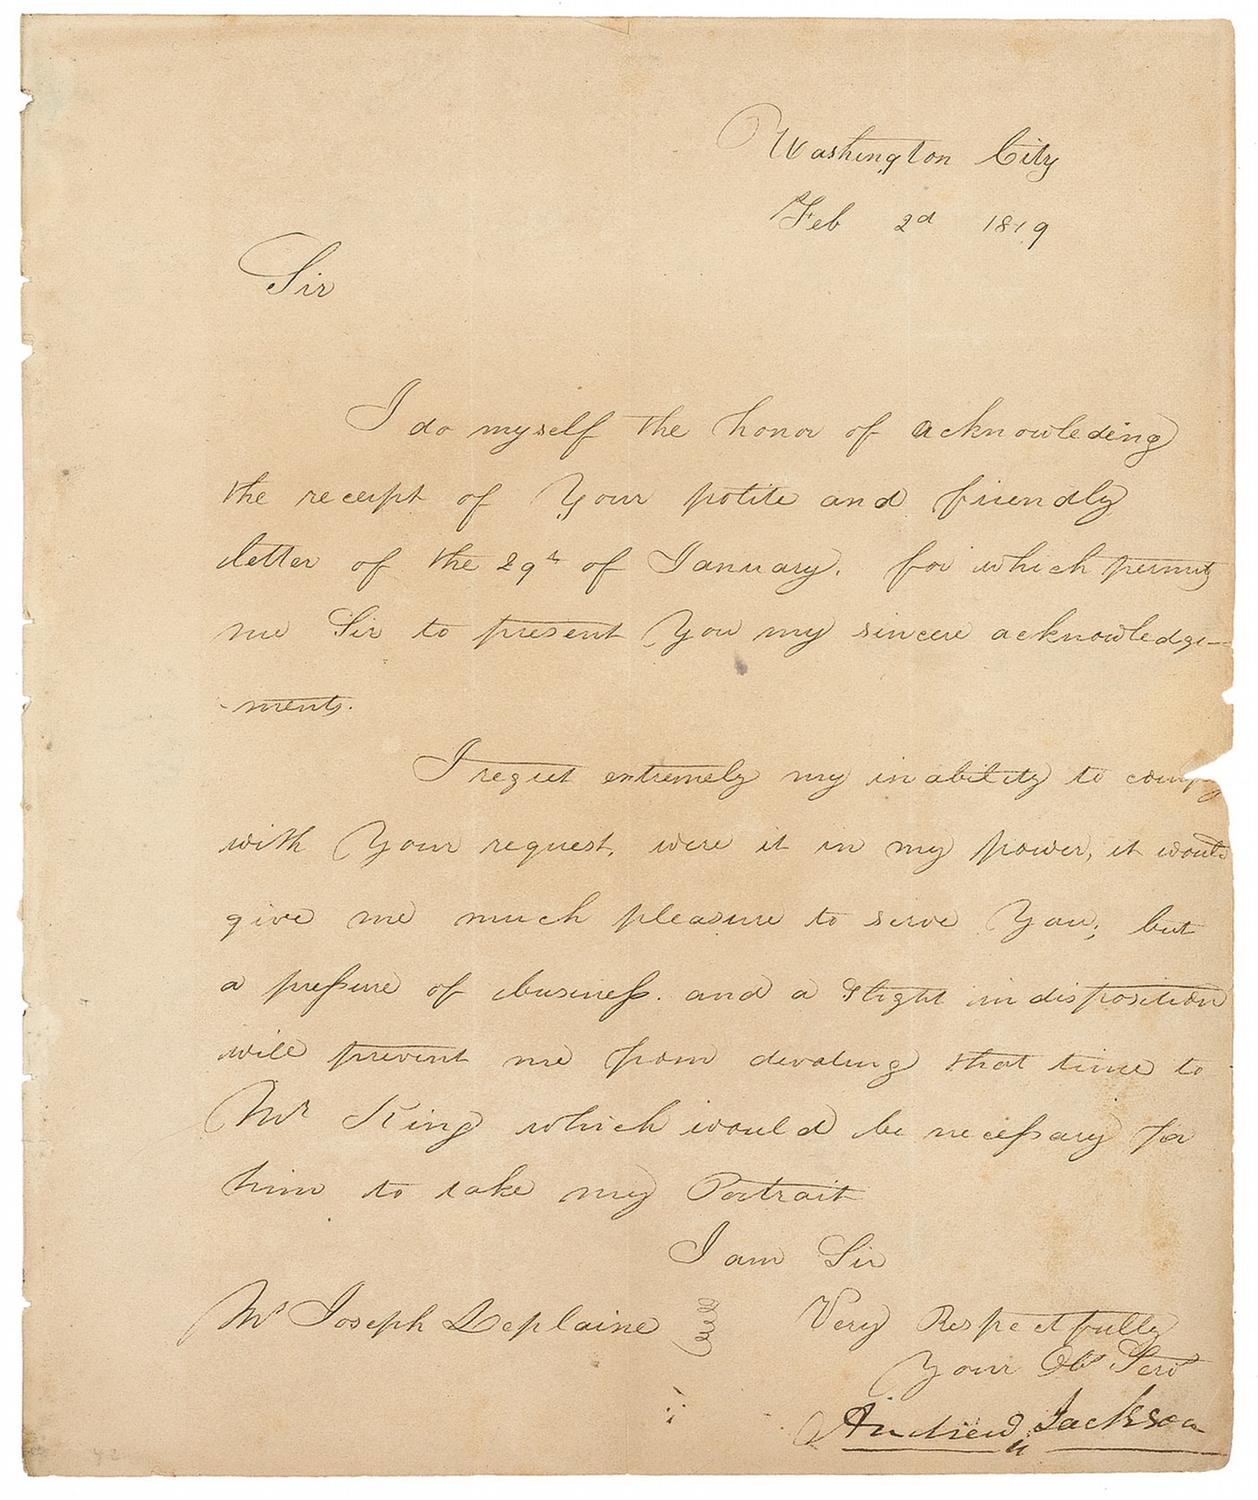 Washington City
Feb 2d 1819
Sir
I do myself the honor of acknowledeing
the receipt of Your polite and friendly
letter of the 29th of January. for which permit
me Sir to present You my sincere acknowledge-
-ments.
I regret extremely my inability to comply
with Your request, were it in my power, it would
give me much pleasure to serve You; but
a pressure of business. and a Slight indisposition
will prevent me from devoting that time to
Mr King which would be necessary for
him to take my Portrait
I am Sir
Mr Joseph Deplaine
Very Respectfully
Your Obt Servt
Andrew Jackson